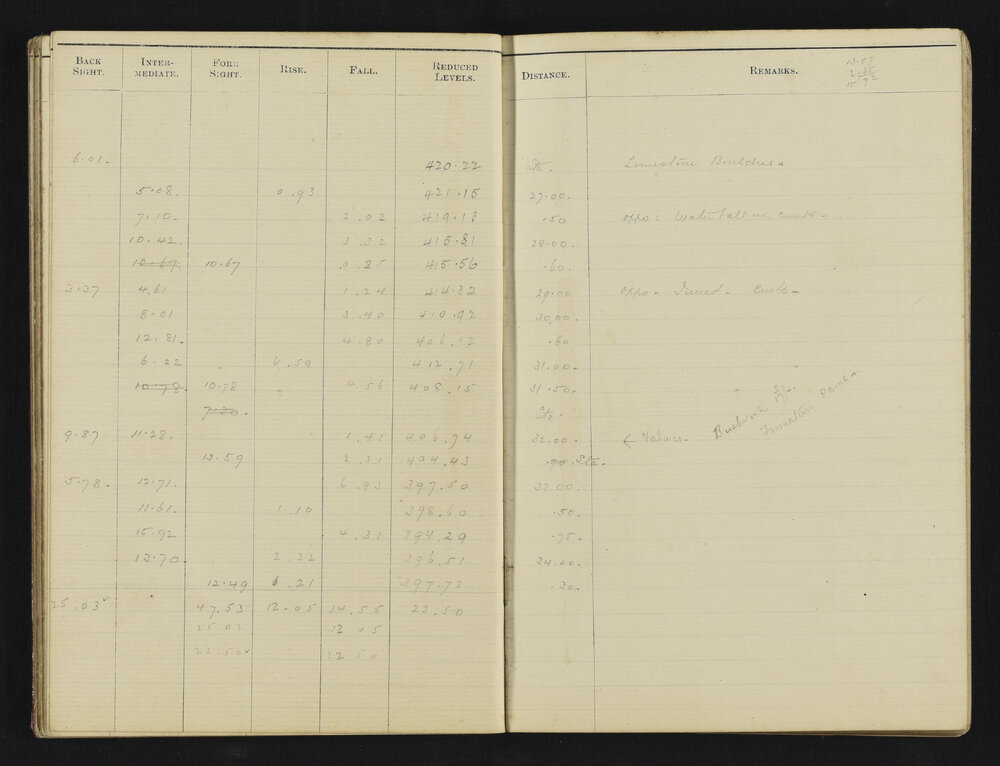 BACK SIGHT. INTER-MEDIATE. FORE SIGHT. RISE. FALL. REDUCED LEVELS. DISTANCE. REMARKS.
15.57
2.35
15.92
6.01 420.22 Sta. Limestone Boulders
5.08 0.93 421.15 27.00
7.10 2.02 419.13 .50 oppo: Waterfall in creek
10.42 3.32 415.81 28.00
10.67 10.67 0.25 415.56 .60
3.37 4.61 1.24 414.32 29.00 oppo - Junct. Creeks
8.01 3.40 410.92 30.00
12.81 4.80 406.12 .60
6.22 6.59 412.71 31.00
10.78 10.78 4.56 408.15 31.50
7.20 Sta.
9.87 11.28 1.41 406.74 32.00 ← Values
Formation
13.59 2.31 404.43 .90 Sta.
5.78 12.71 6.93 397.50 33.00
11.61 1.10 398.60 .50
15.92 4.31 394.29 .75
13.70 2.22 396.51 34.00
12.49 1.21 397.72 .30
25.03 47.53 12.05 34.55 22.50
25 03 12 05
22.50 22 50